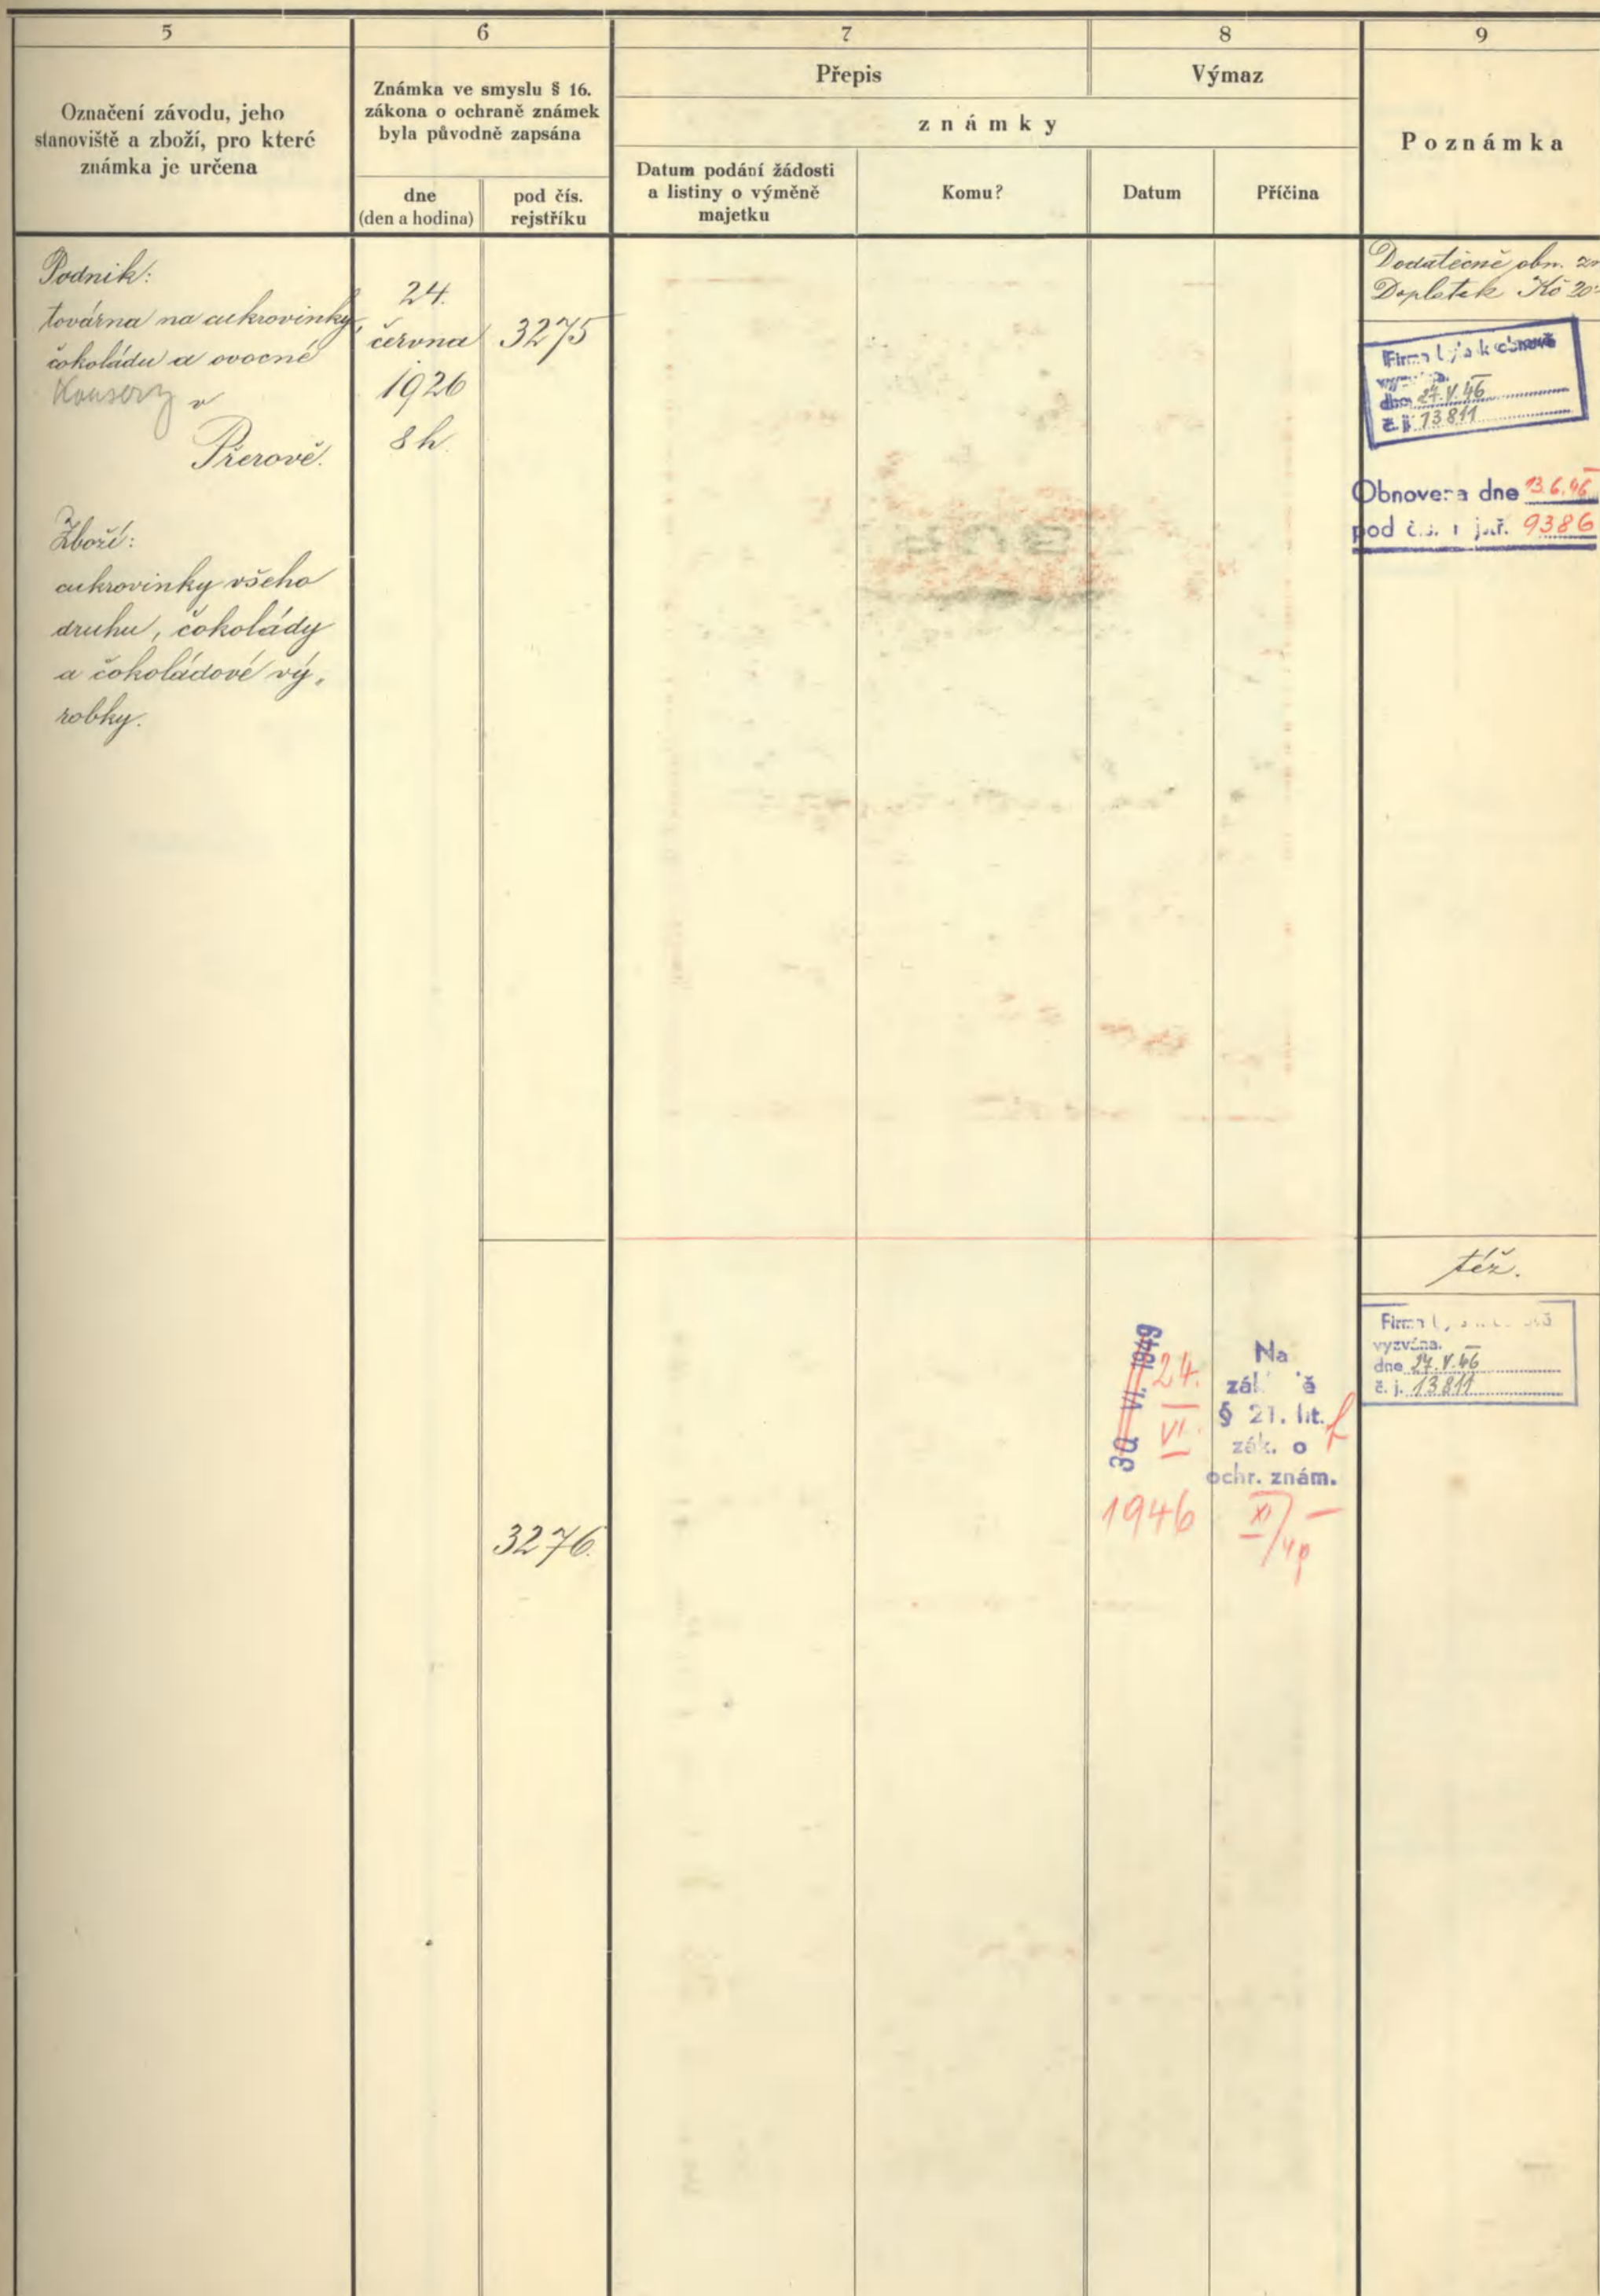 5
6
7
8
9
Označení závodu, jeho
stanoviště a zboží, pro které
známka je určena
Známka ve smyslu § 16.
zákona o ochraně známek
byla původně zapsána
dne
(den a hodina)
pod čís.
rejstříku
Přepis
Výmaz
známky
Datum podání žádosti
a listiny o výměně
majetku
Komu?
Datum
Příčina
Poznámka
Podnik:
továrna na cukrovinky,
čokoládu a ovocné
Konservy v
Přerově.
Zboží:
cukrovinky všeho
druhu, čokolády
a čokoládové vý-
robky.
24.
června
1926
8 h.
3275
Dodatečně obn.
Doplatek Kč 20
Firma byla k obnově
dne 27.V.46
č. j. 13811
Obnovena dne 13.6.46
pod č. 9386
3276.
30 VI. 1949
24.
VI.
1946
Na
základě
§ 21. lit. f
zák. o
ochr. znám.
též.
Firma
vyzvána.
dne 27.V.46
č. j. 13811